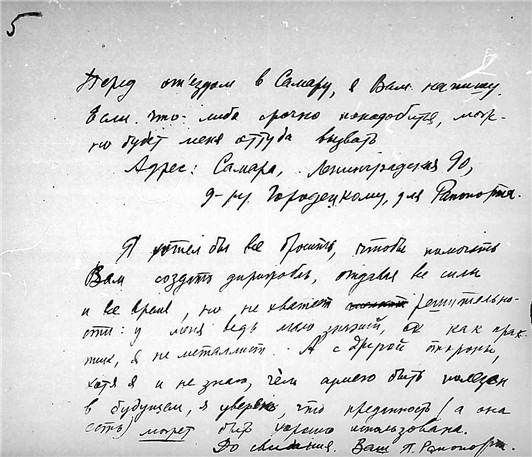 5
Перед от'ездом в Самару, я Вам напишу
Если что-либо срочно понадобится, мож-
но будет меня оттуда вызвать
Адрес: Самара, Ленинградская 90,
д-ру Городецкому, для Рапопорта.
Я хотел бы все бросить, чтобы помогать
Вам создать дирижабль, отдавая все силы
и все время, но не хватает решительно-
сти: у меня ведь мало знаний, я как прак-
тик, я не металлист. А с другой стороны,
хотя я и не знаю, чем могу быть полезен
в будущем, я уверен, что преданность (а она
есть) может быть хорошо использована.
До свидания. Ваш П. Рапопорт.